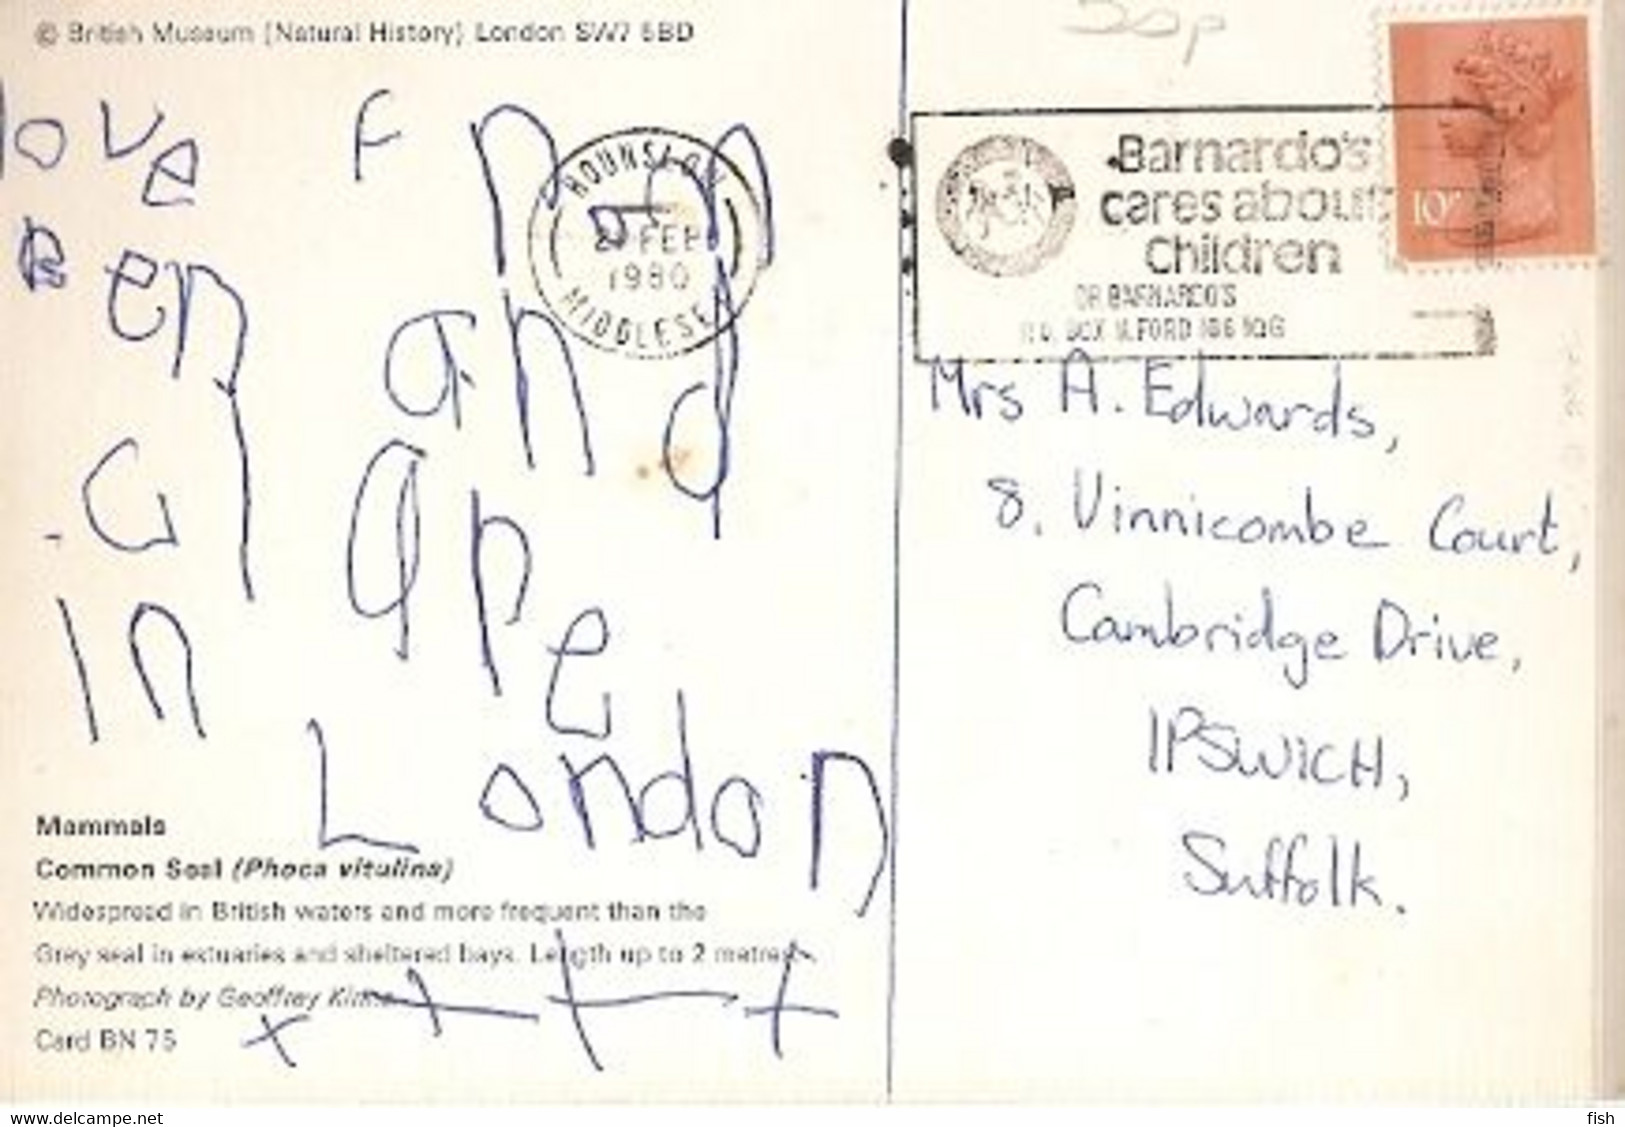 © British Museum (Natural History) London SW7 5BD
love From
Ben and
Gape
In London
Mammals
Common Seal (Phoca vitulina)
Widespread in British waters and more frequent than the
Grey seal in estuaries and sheltered bays. Length up to 2 metres.
Photograph by Geoffrey
Card BN 75
30p
HOUNSLOW
FEB
1980
MIDDLESEX
Barnardo's
cares about
Children
DR BARNARDO'S
P.O. BOX ILFORD IG6 1QG
10P
Mrs A. Edwards,
8. Vinnicombe Court,
Cambridge Drive,
IPSWICH,
Suffolk.
www.delcampe.net
fish